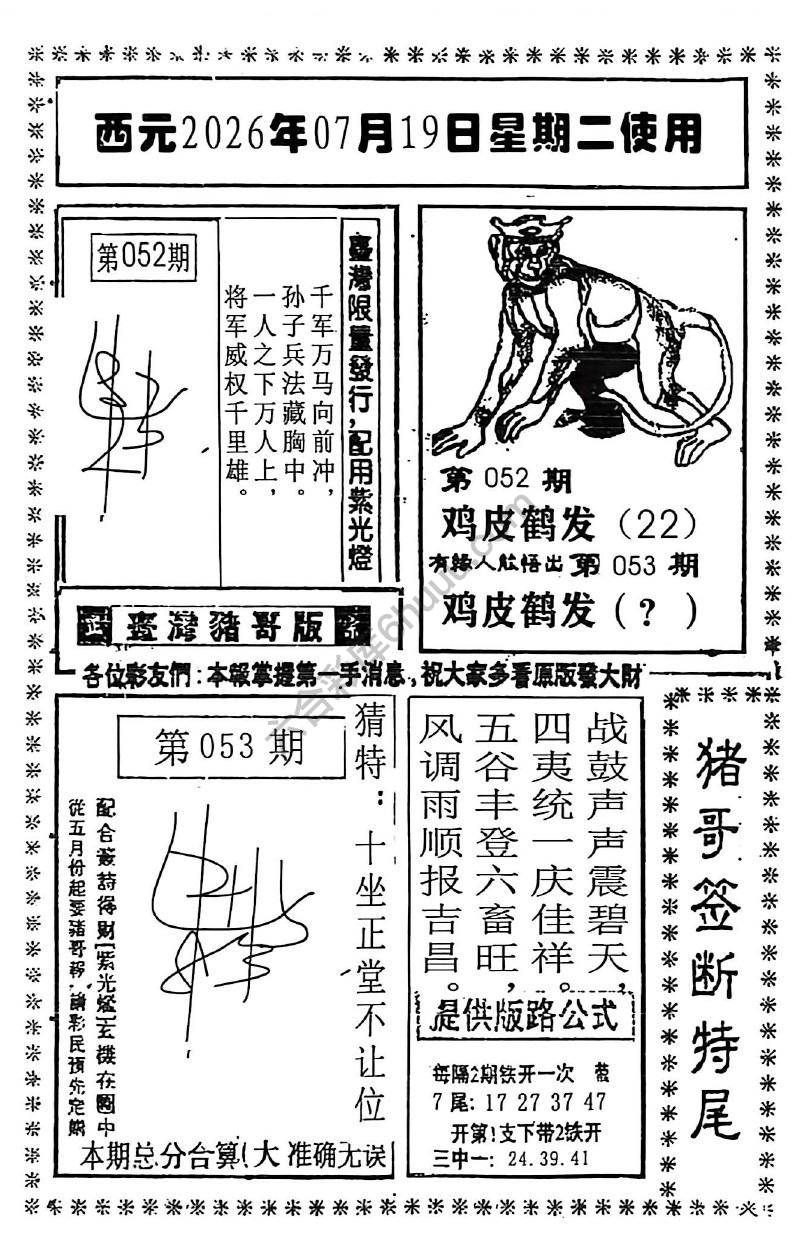 西元2026年07月19日星期二使用
第052期
千军万马向前冲，
孙子兵法藏胸中。
一人之下万人上，
将军威权千里雄。
臺灣限量發行，配用紫光燈
第 052 期
鸡皮鹤发（22）
有緣人能悟出 第 053 期
鸡皮鹤发（？）
臺灣豬哥版
各位彩友們：本報掌握第一手消息，祝大家多看原版發大財
第 053 期
猜特：十坐正堂不让位
配合叢詩得财［紫光燈］玄機在圖中
從五月份起要豬哥報，請彩民預先定購
本期总分合算（大 准确无误
战鼓声声震碧天，
四夷统一庆佳祥。
五谷丰登六畜旺，
风调雨顺报吉昌。
提供版路公式
每隔2期铁开一次
7尾：17 27 37 47
开第1支下带2铁开
三中一：24.39.41
猪哥签断特尾